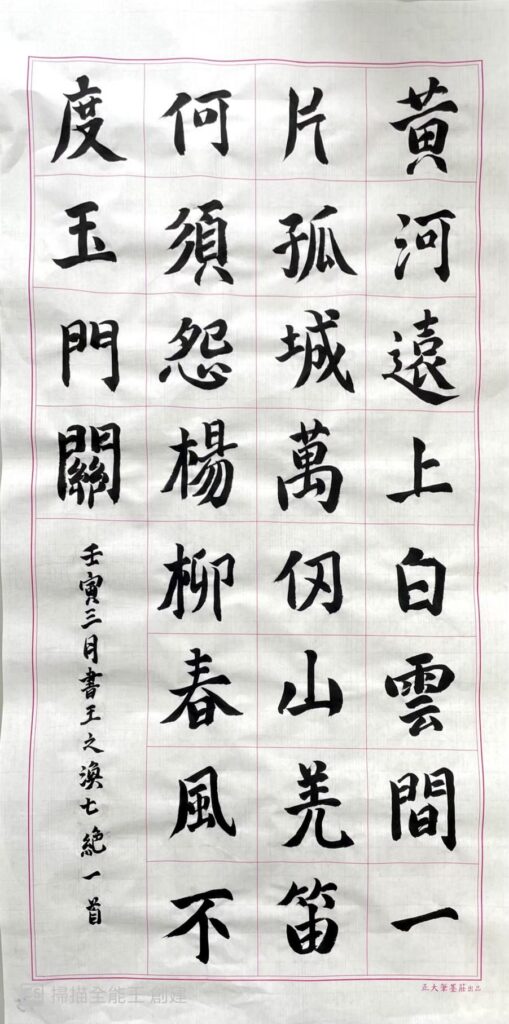 黃河遠上白雲間一
片孤城萬仞山羌笛
何須怨楊柳春風不
度玉門關
壬寅三月書王之渙七絕一首
正大筆墨莊出品
掃描全能王 創建